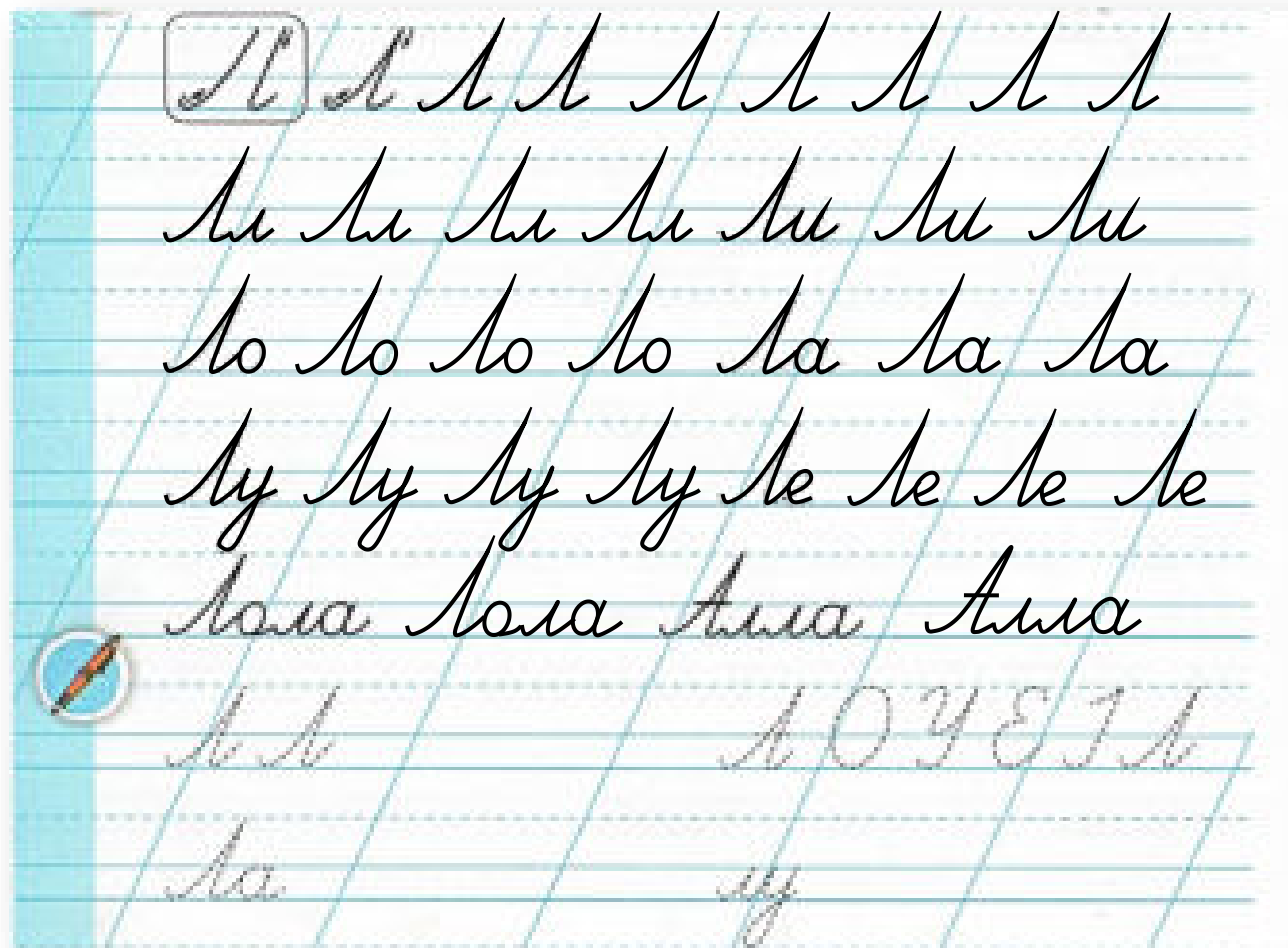 Л Л Л Л Л Л Л Л Л
Лл Лл Лл Лл Ли Ли Ли
Ло Ло Ло Ло Ла Ла Ла
Лу Лу Лу Лу Ле Ле Ле Ле
Лола Лола Алла Алла
Л Л Л О У Е І Л
Ла лу